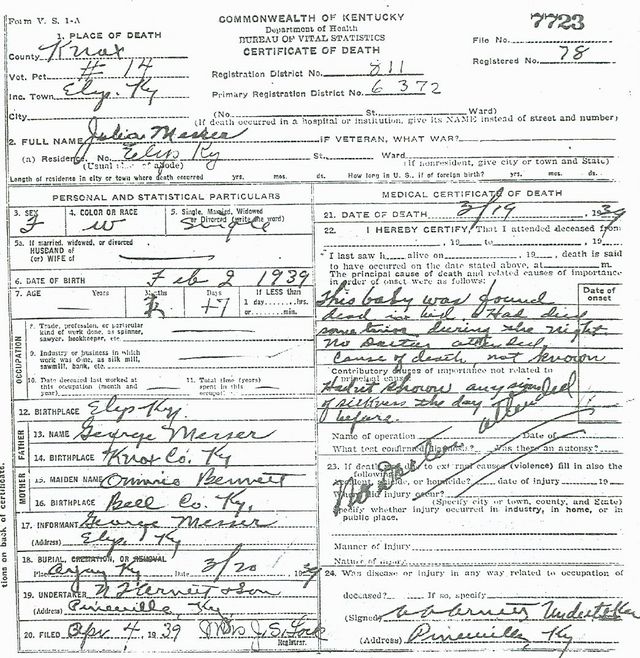 Form V. S. 1-A
COMMONWEALTH OF KENTUCKY
Department of Health
BUREAU OF VITAL STATISTICS
CERTIFICATE OF DEATH
7723
File No.
Registered No. 78
1. PLACE OF DEATH
County Knox
Vot. Pct. # 14
Inc. Town Elys, Ky
Registration District No. 811
Primary Registration District No. 6372
City (No. St. Ward)
(If death occurred in a hospital or institution, give its NAME instead of street and number)
2. FULL NAME Julia Messer IF VETERAN, WHAT WAR?
(a) Residence. No. Elys Ky St. Ward
(Usual place of abode) (If nonresident, give city or town and State)
Length of residence in city or town where death occurred yrs. mos. ds. How long in U. S., if of foreign birth? yrs. mos. ds.
PERSONAL AND STATISTICAL PARTICULARS
3. SEX F
4. COLOR OR RACE W
5. Single, Married, Widowed or Divorced (write the word) Single
5a. If married, widowed, or divorced
HUSBAND of
(or) WIFE of
6. DATE OF BIRTH Feb 2 1939
7. AGE Years Months Days 17 If LESS than
1 day, hrs.
or min.
OCCUPATION
8. Trade, profession, or particular
kind of work done, as spinner,
sawyer, bookkeeper, etc.
9. Industry or business in which
work was done, as silk mill,
sawmill, bank, etc.
10. Date deceased last worked at
this occupation (month and
year)
11. Total time (years)
spent in this
occupation
12. BIRTHPLACE Elys Ky.
FATHER
13. NAME George Messer
14. BIRTHPLACE Knox Co. Ky
MOTHER
15. MAIDEN NAME Bennett
16. BIRTHPLACE Bell Co. Ky.
17. INFORMANT George Messer
(Address) Elys, Ky
18. BURIAL, CREMATION, OR REMOVAL
Place Ky Date 3/20 1939
19. UNDERTAKER & Son
(Address) Pineville, Ky.
20. FILED Apr 4, 1939 Mrs J. S. Lock
Registrar.
MEDICAL CERTIFICATE OF DEATH
21. DATE OF DEATH 3/19, 1939
22. I HEREBY CERTIFY, That I attended deceased from
, 19 to , 19
I last saw h alive on , 19 , death is said
to have occurred on the date stated above, at m.
The principal cause of death and related causes of importance
in order of onset were as follows:
Date of
onset
This baby was found
dead in bed. Had died
sometime during the night
No Doctor attended.
cause of death not known
Contributory causes of importance not related to
principal cause:
Hadnt shown any signs
of sickness the day
before.
No Doctor attended
Name of operation Date of
What test confirmed diagnosis? Was there an autopsy?
23. If death was due to external causes (violence) fill in also the
following:
Accident, suicide, or homicide? date of injury 19
Where did injury occur?
(Specify city or town, county, and State)
Specify whether injury occurred in industry, in home, or in
public place.
Manner of injury
Nature of injury
24. Was disease or injury in any way related to occupation of
deceased? If so, specify
(Signed) Undertaker
(Address) Pineville, Ky
tions on back of certificate.